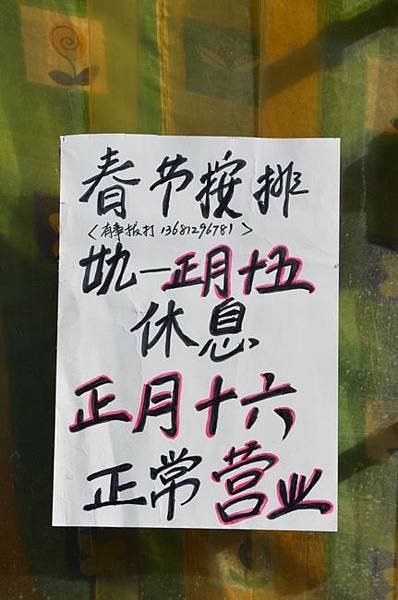 春节按排
<有事拔打 13681296781>
廿九一正月十五
休息
正月十六
正常营业